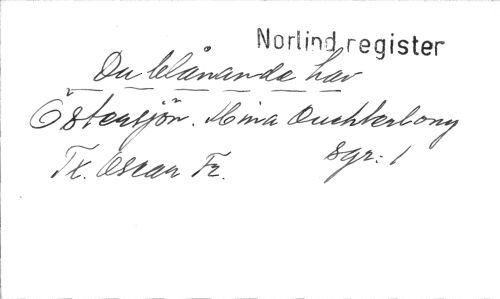 Norlind register
Du blånande hav
Östersjön. Mina Ouchterlony
Tx. Oscar Fr. sgr: 1